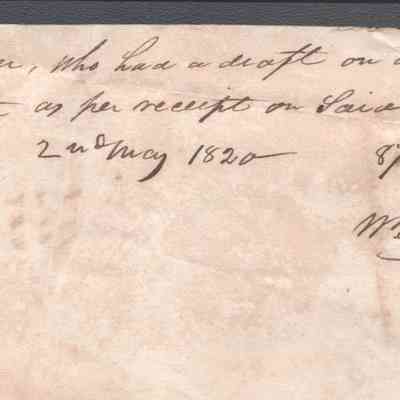 who had a draft on
as per receipt on Said
2nd May 1820 8
W